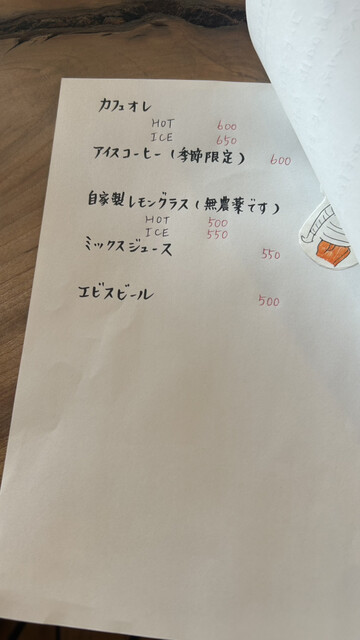 カフェオレ
HOT 600
ICE 650
アイスコーヒー(季節限定) 600
自家製レモングラス(無農薬です)
HOT 500
ICE 550
ミックスジュース 550
エビスビール 500